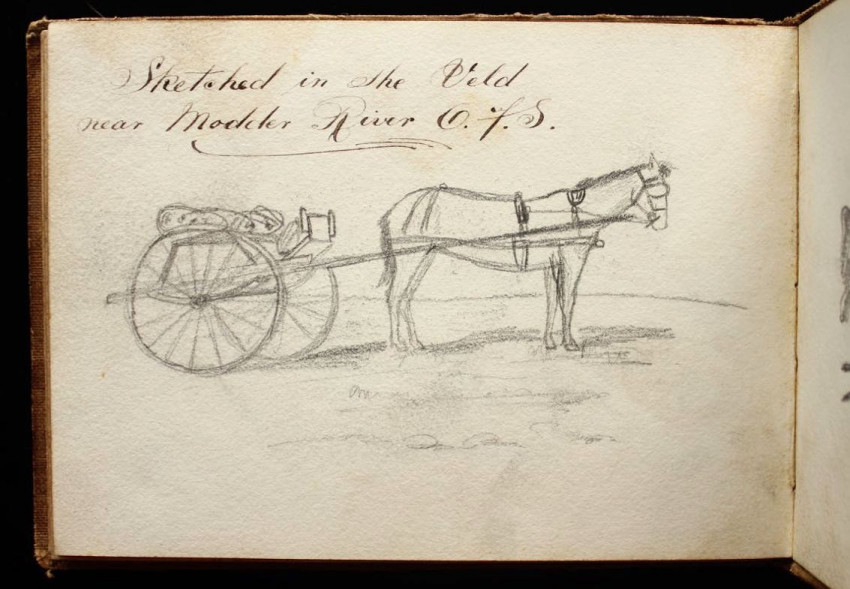 Sketched in the Veld
near Modder River O.F.S.